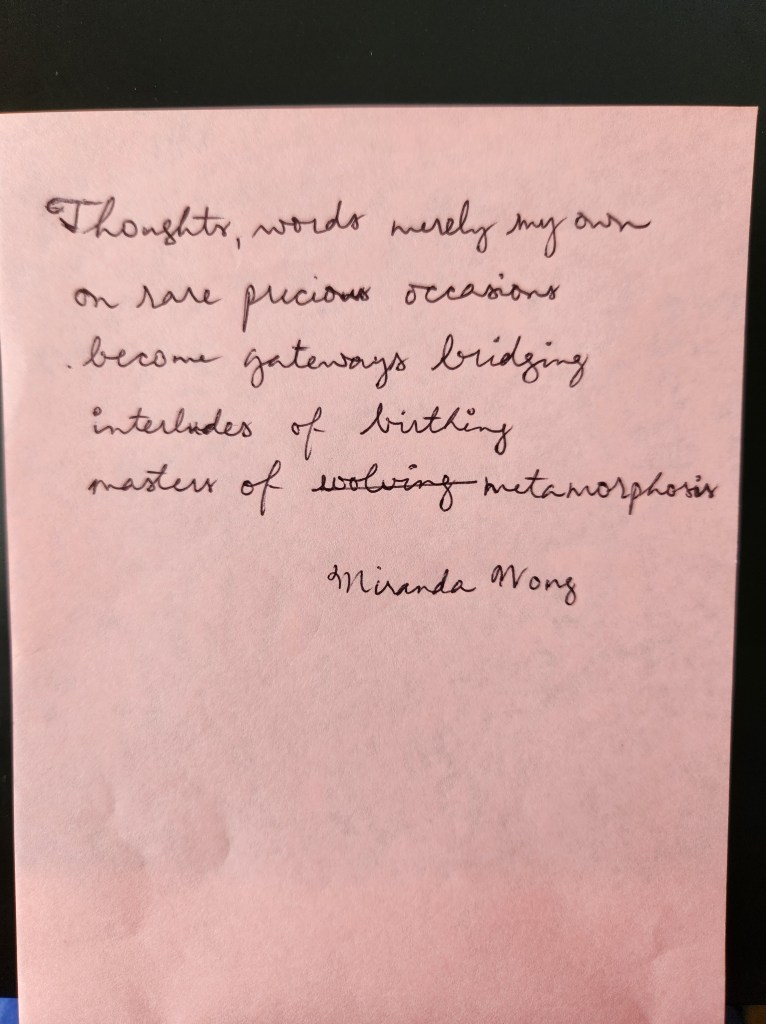 Thoughts, words merely my own
on rare precious occasions
become gateways bridging
interludes of birthing
masters of evolving metamorphosis
Miranda Wong